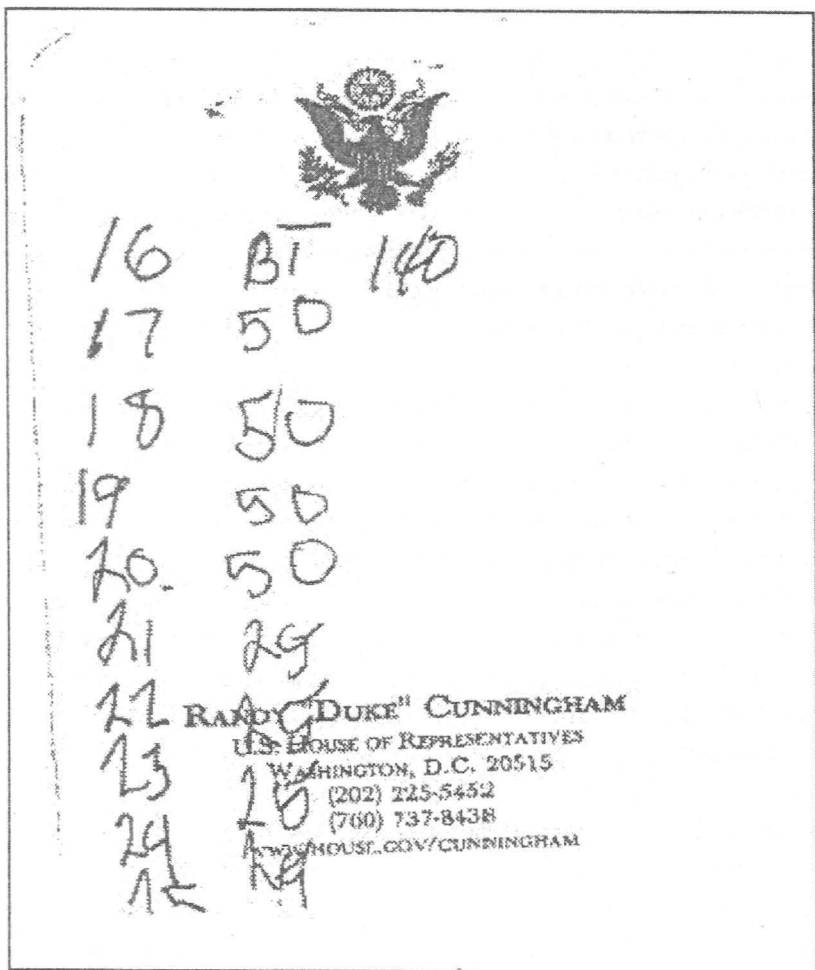 16 BT 140
17 50
18 50
19 50
20. 50
21 25
22
RANDY "DUKE" CUNNINGHAM
U.S. HOUSE OF REPRESENTATIVES
23
WASHINGTON, D.C. 20515
25
(202) 225-5452
(760) 737-8438
24
WWW.HOUSE.GOV/CUNNINGHAM
25